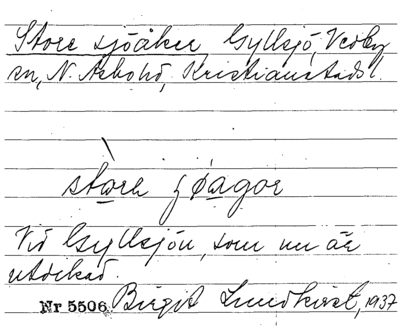 Store sjöåker, Gyllsjö, Vedby
sn, N. Åsbohd, Kristianstads l.
stora ʃøagor
Vid Gyllsjön, som nu är
utdikad.
Nr 5506. Birgit Lundkvist, 1937